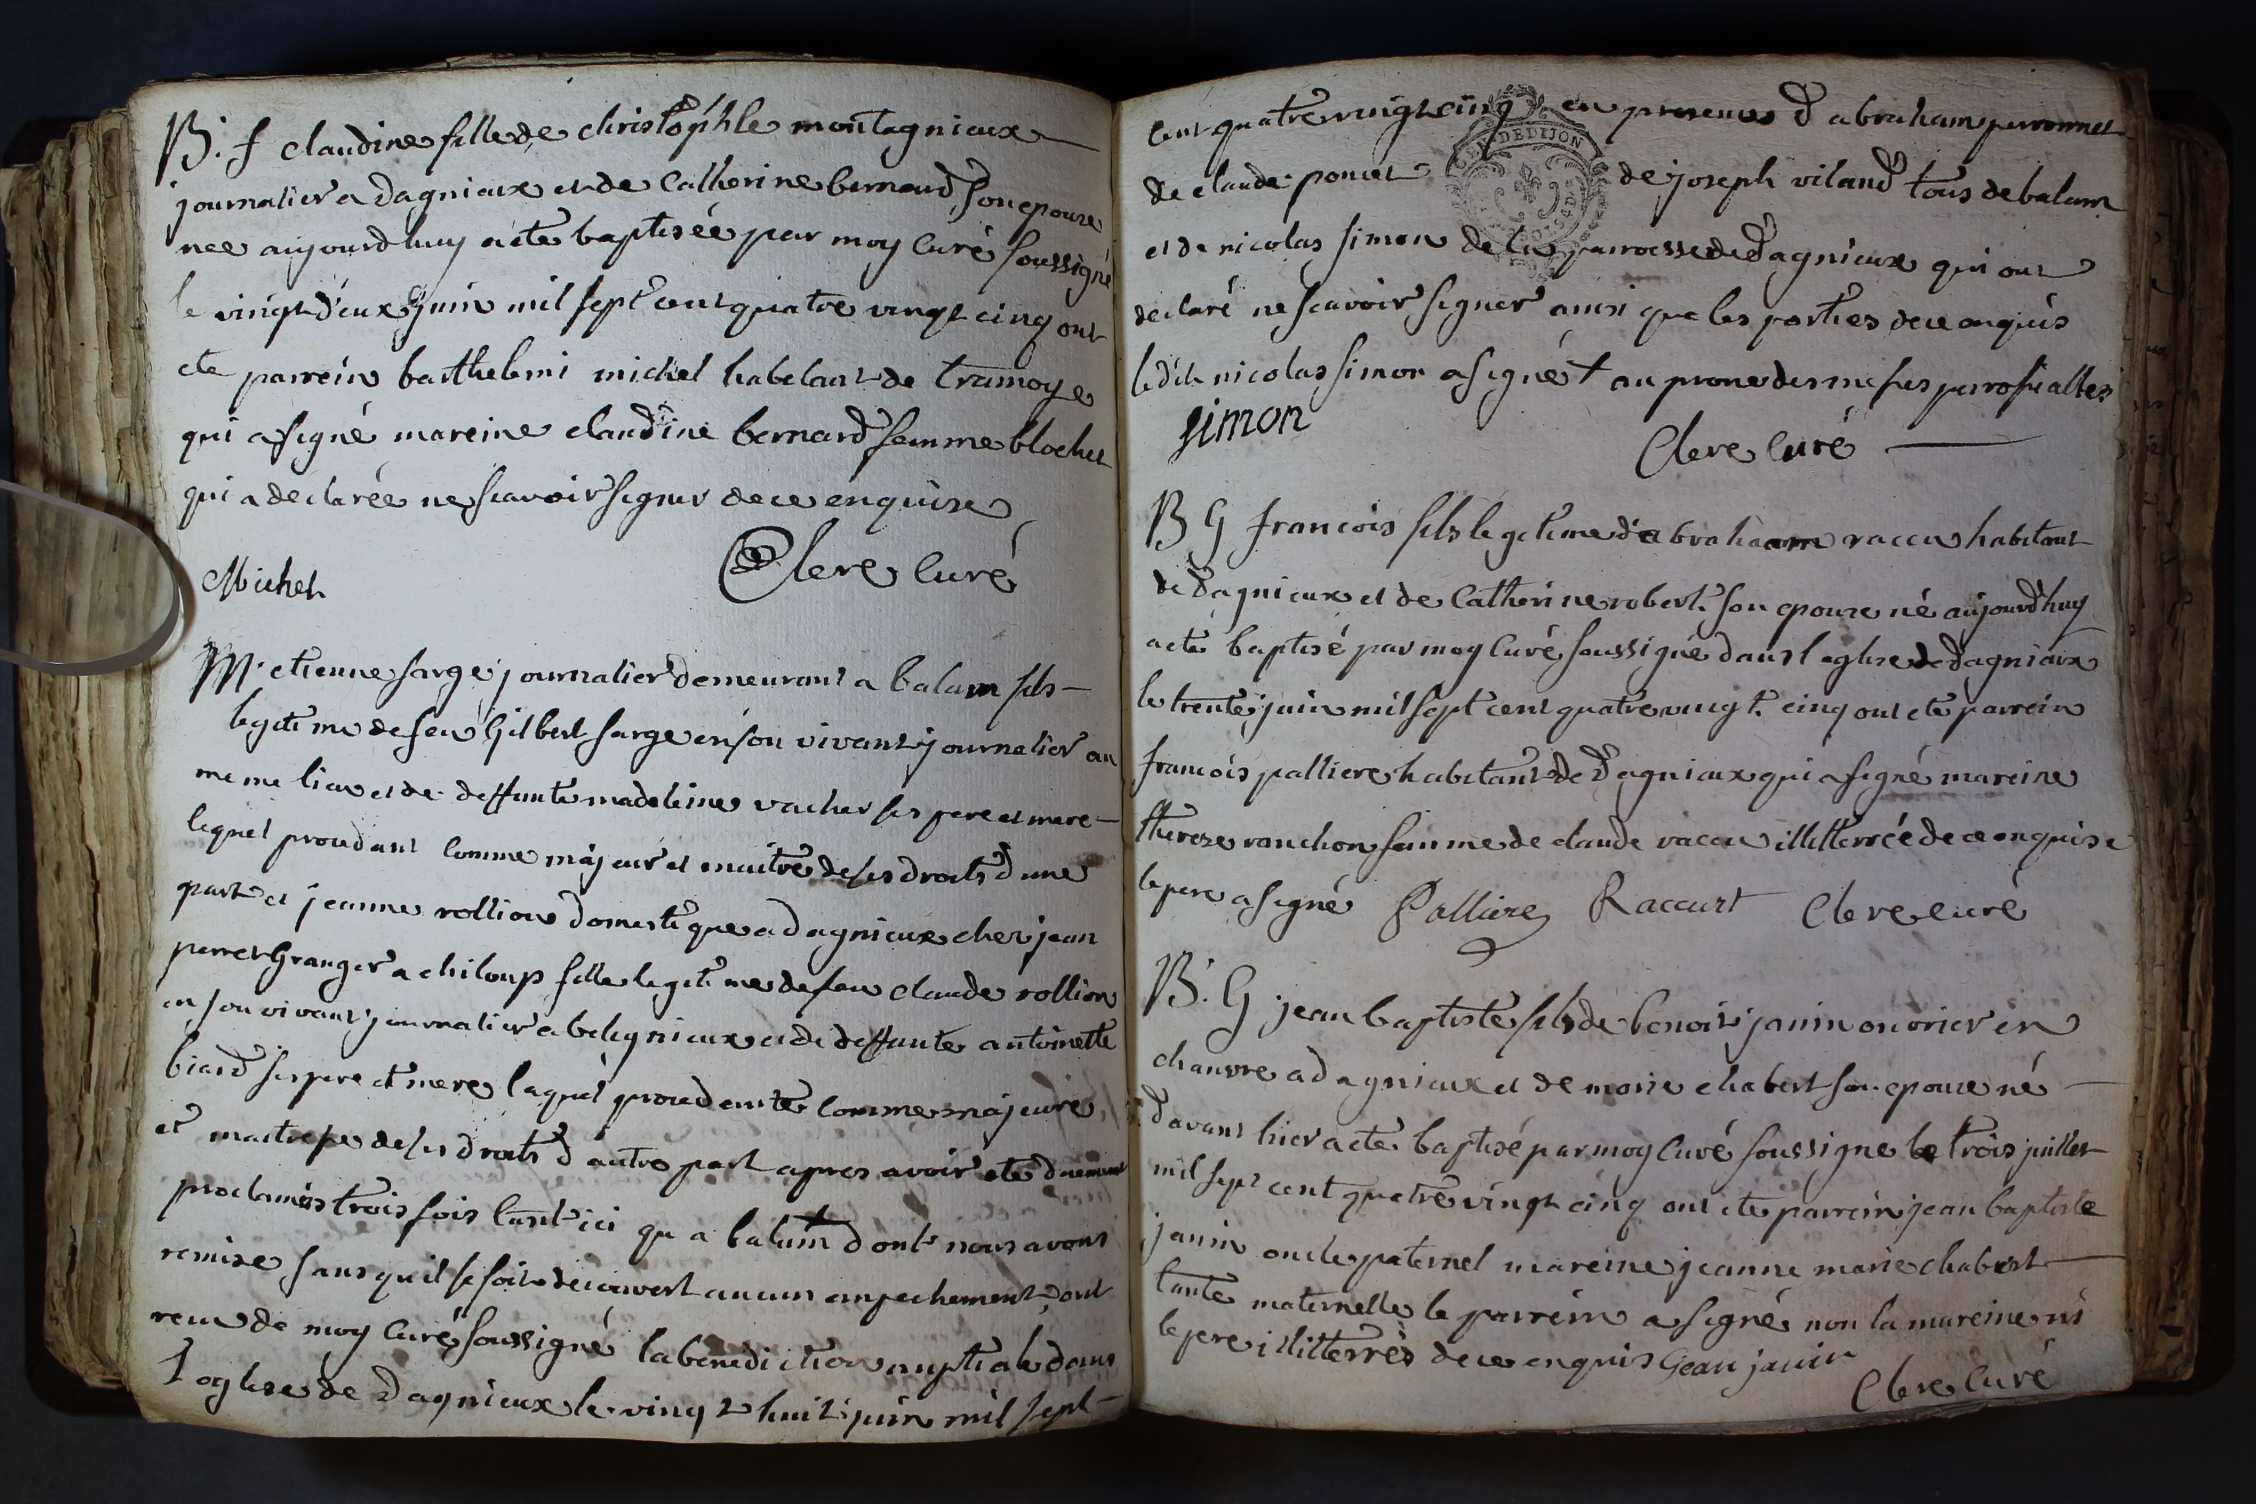 B. f claudine fille de christophle montagnieux
journalier a dagnieux et de Catherine bernard son epouse
nee aujourdhuy a ete baptisée par moy Curé soussigné
le vingt deux juin mil sept cent quatre vingt cinq ont
ete parrein barthelemi michel habitant de tramoye
qui a signé mareine claudine bernard femme blochet
qui a declarée ne scavoir signer de ce enquise
Michel
Clere Curé
M. etienne sarge journalier demeurant a balam fils
legitime de feu Gilbert sarge en son vivant journalier au
meme lieu et de deffunte madeleine vacher ses pere et mere
lequel procedant comme majeur et maitre de ses droits d'une
part et jeanne rollion domestique a dagnieux chez jean
perret Granger a chiloup fille legitime de feu claude rollion
en son vivant journalier a beligneux et de deffunte antoinette
biard ses pere et mere laquel procedente comme majeure
et maitresse de ses droits d'autre part apres avoir ete duement
proclamés trois fois tant ici qu a balam dont nous avons
remise sans quil se soit decouvert aucun empechement, ont
recu de moy Curé soussigné la benediction nuptiale dans
l eglise de Dagnieux le vingt huit juin mil sept
cent quatre vingt cinq en presence d abraham perronnet
de claude poncet de joseph viland tous de balam
et de nicolas simon de la parroisse de dagnieux qui ont
declaré ne scavoir signer ainsi que les parties de ce enquis
ledit nicolas simon a signé + au prone des messes parrossialles
simon
Clere Curé
B G francois fils legitime d'abrahaam raccu habitant
de dagnieux et de Catherine robert son epouse né aujourdhuy
a eté baptisé par moy Curé soussigné dans l eglise de dagnieux
le trente juin mil sept cent quatre vingt cinq ont ete parrein
francois palliere habitant de Dagnieux qui a signé mareine
therese ronchon femme de claude raccu illitterée de ce enquise
le pere a signé Palliere Raccurt Clere curé
B. G jean baptiste fils de benoit janin ouvrier en
chanvre a dagnieux et de marie chabert son epouse né
davant hier a ete baptisé par moy Curé soussigné le trois juillet
mil sept cent quatre vingt cinq ont ete parrein jean baptiste
janin oncle paternel mareine jeanne marie chabert
tante maternelle le parrein a signé non la mareine ni
le pere illitterrés de ce enquis Gean janin
Clere Curé